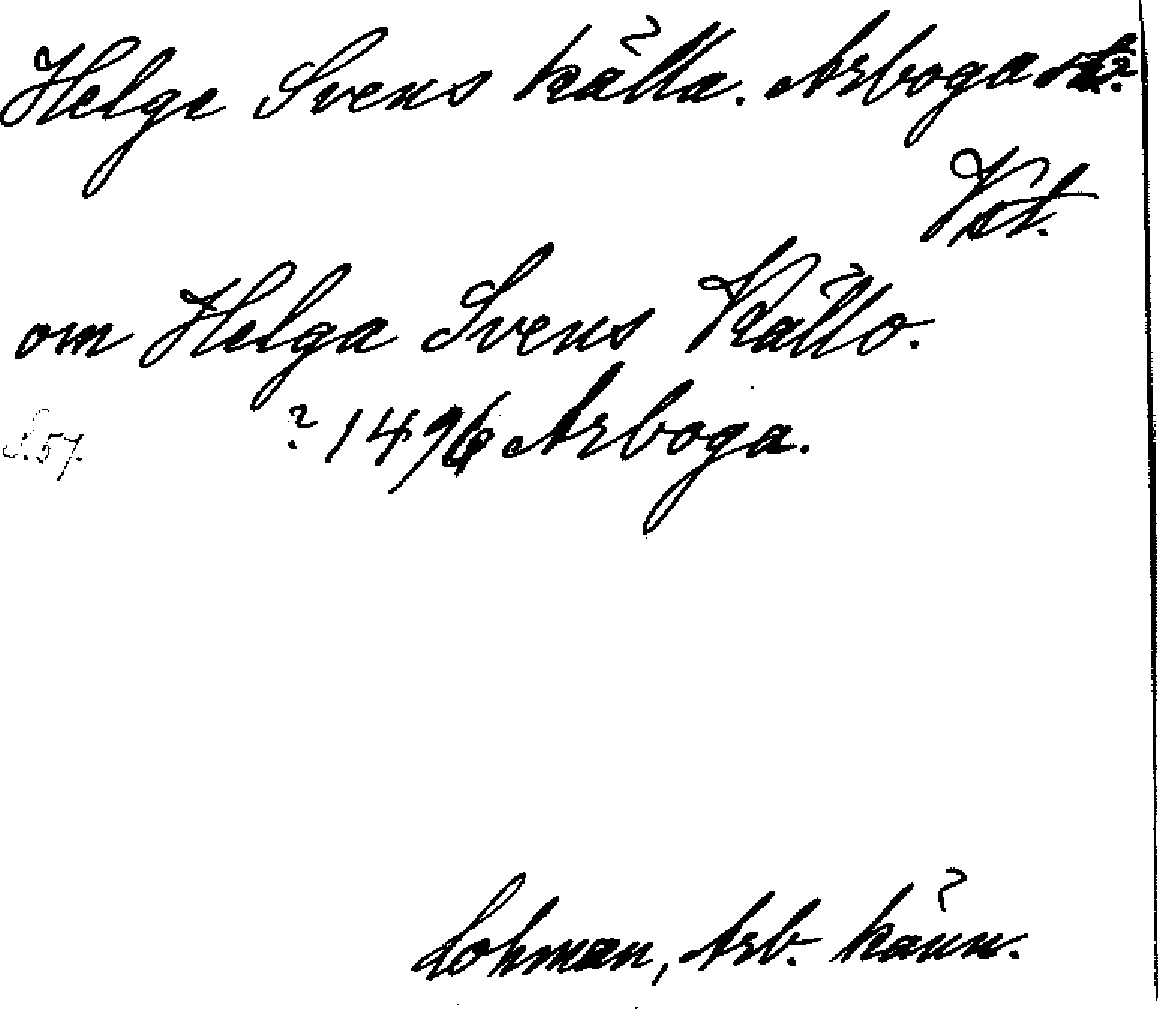 Helge Svens källa. Arboga st.?
Vst.
om Helga Svens Källo.
S. 57. ? 1496 Arboga.
Lohman, Arb. känn.